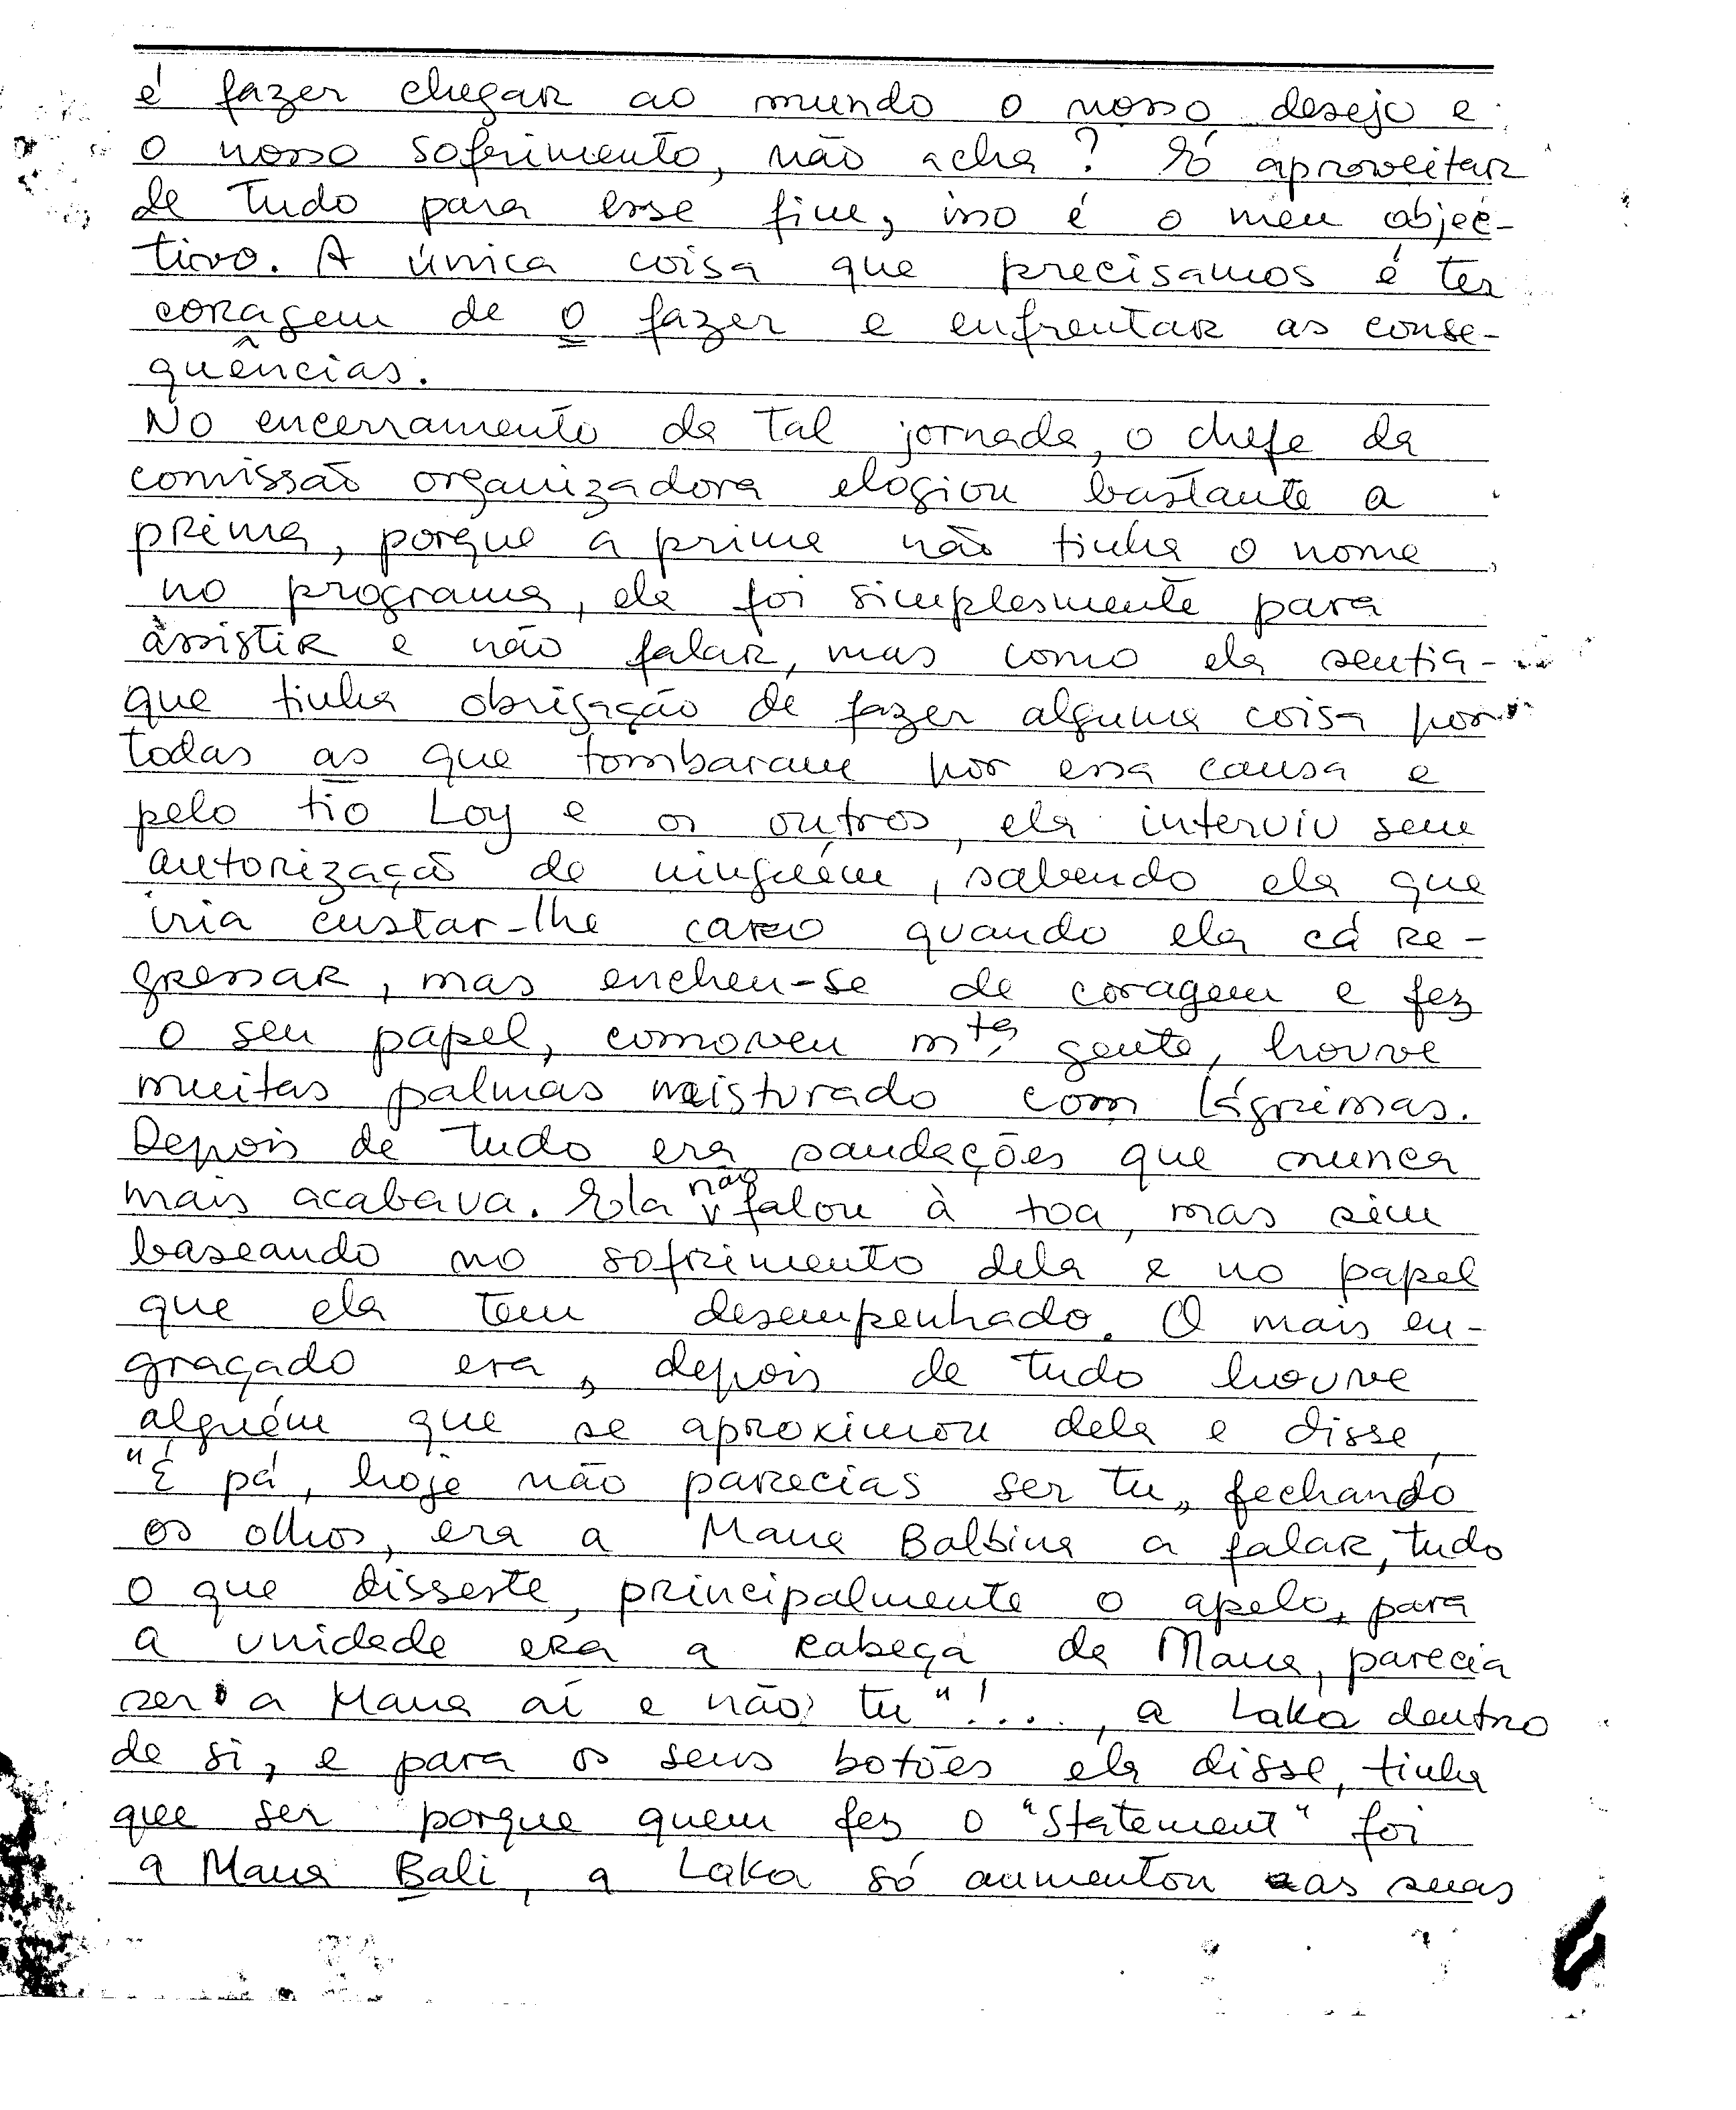 é fazer chegar ao mundo o nosso desejo e
o nosso sofrimento, não acha? Só aproveitar
de tudo para esse fim, isso é o meu objec-
tivo. A única coisa que precisamos é ter
coragem de o fazer e enfrentar as conse-
quências.
No encerramento da tal jornada, o chefe da
comissão organizadora elogiou bastante a
prima, porque a prima não tinha o nome
no programa, ela foi simplesmente para
assistir e não falar, mas como ela sentia
que tinha obrigação de fazer alguma coisa por
todas as que tombaram por essa causa e
pelo tio Loy e os outros, ela interviu sem
autorização de ninguém, sabendo ela que
iria custar-lhe caro quando ela cá re-
gressar, mas encheu-se de coragem e fez
o seu papel, comoveu mta gente, houve
muitas palmas misturado com lágrimas.
Depois de tudo era saudações que nunca
mais acabava. Ela não falou à toa, mas sim
baseando no sofrimento dela e no papel
que ela tem desempenhado. O mais en-
graçado era, depois de tudo houve
alguém que se aproximou dela e disse,
"É pá, hoje não parecias ser tu, fechando
os olhos, era a Mana Balbina a falar, tudo
o que disseste, principalmente o apelo, para
a unidade era a cabeça da Mana, parecia
ser a Mana aí e não tu"!...., a Laka dentro
de si, e para os seus botões ela disse, tinha
que ser porque quem fez o "statement" foi
a Mana Bali, a Laka só aumentou as suas